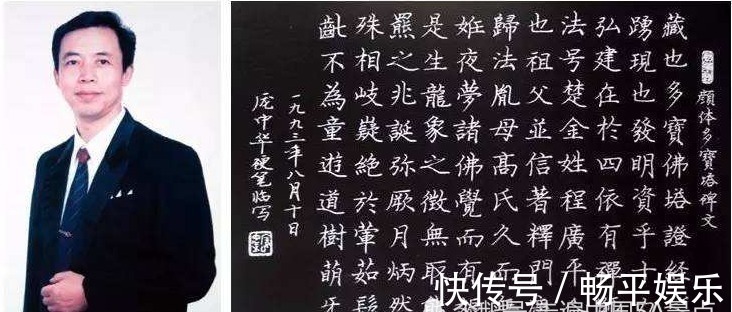 顏体多寶塔碑文
藏也多寶佛塔證經
踴現也發明資乎十
弘建在於四依有禪
法号楚金姓程廣平
也祖父並信著釋門
歸法胤母高氏久而
姙夜夢諸佛覺而有
是生龍象之徵無取
羆之兆誕弥厥月炳然
殊相岐嶷絕於葷茹髫
齔不為童遊道樹萌牙
一九九三年八月十日
庞中华硬笔临写
快传号/畅平娱乐